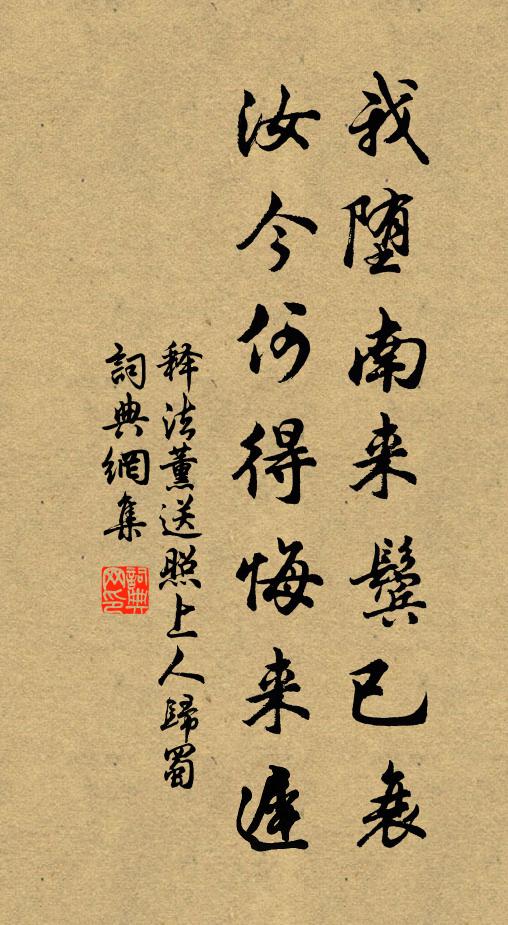 我堕南来鬓已衰
汝今何得悔来遲
释法薰送照上人歸蜀
詞典網集
詞典网印